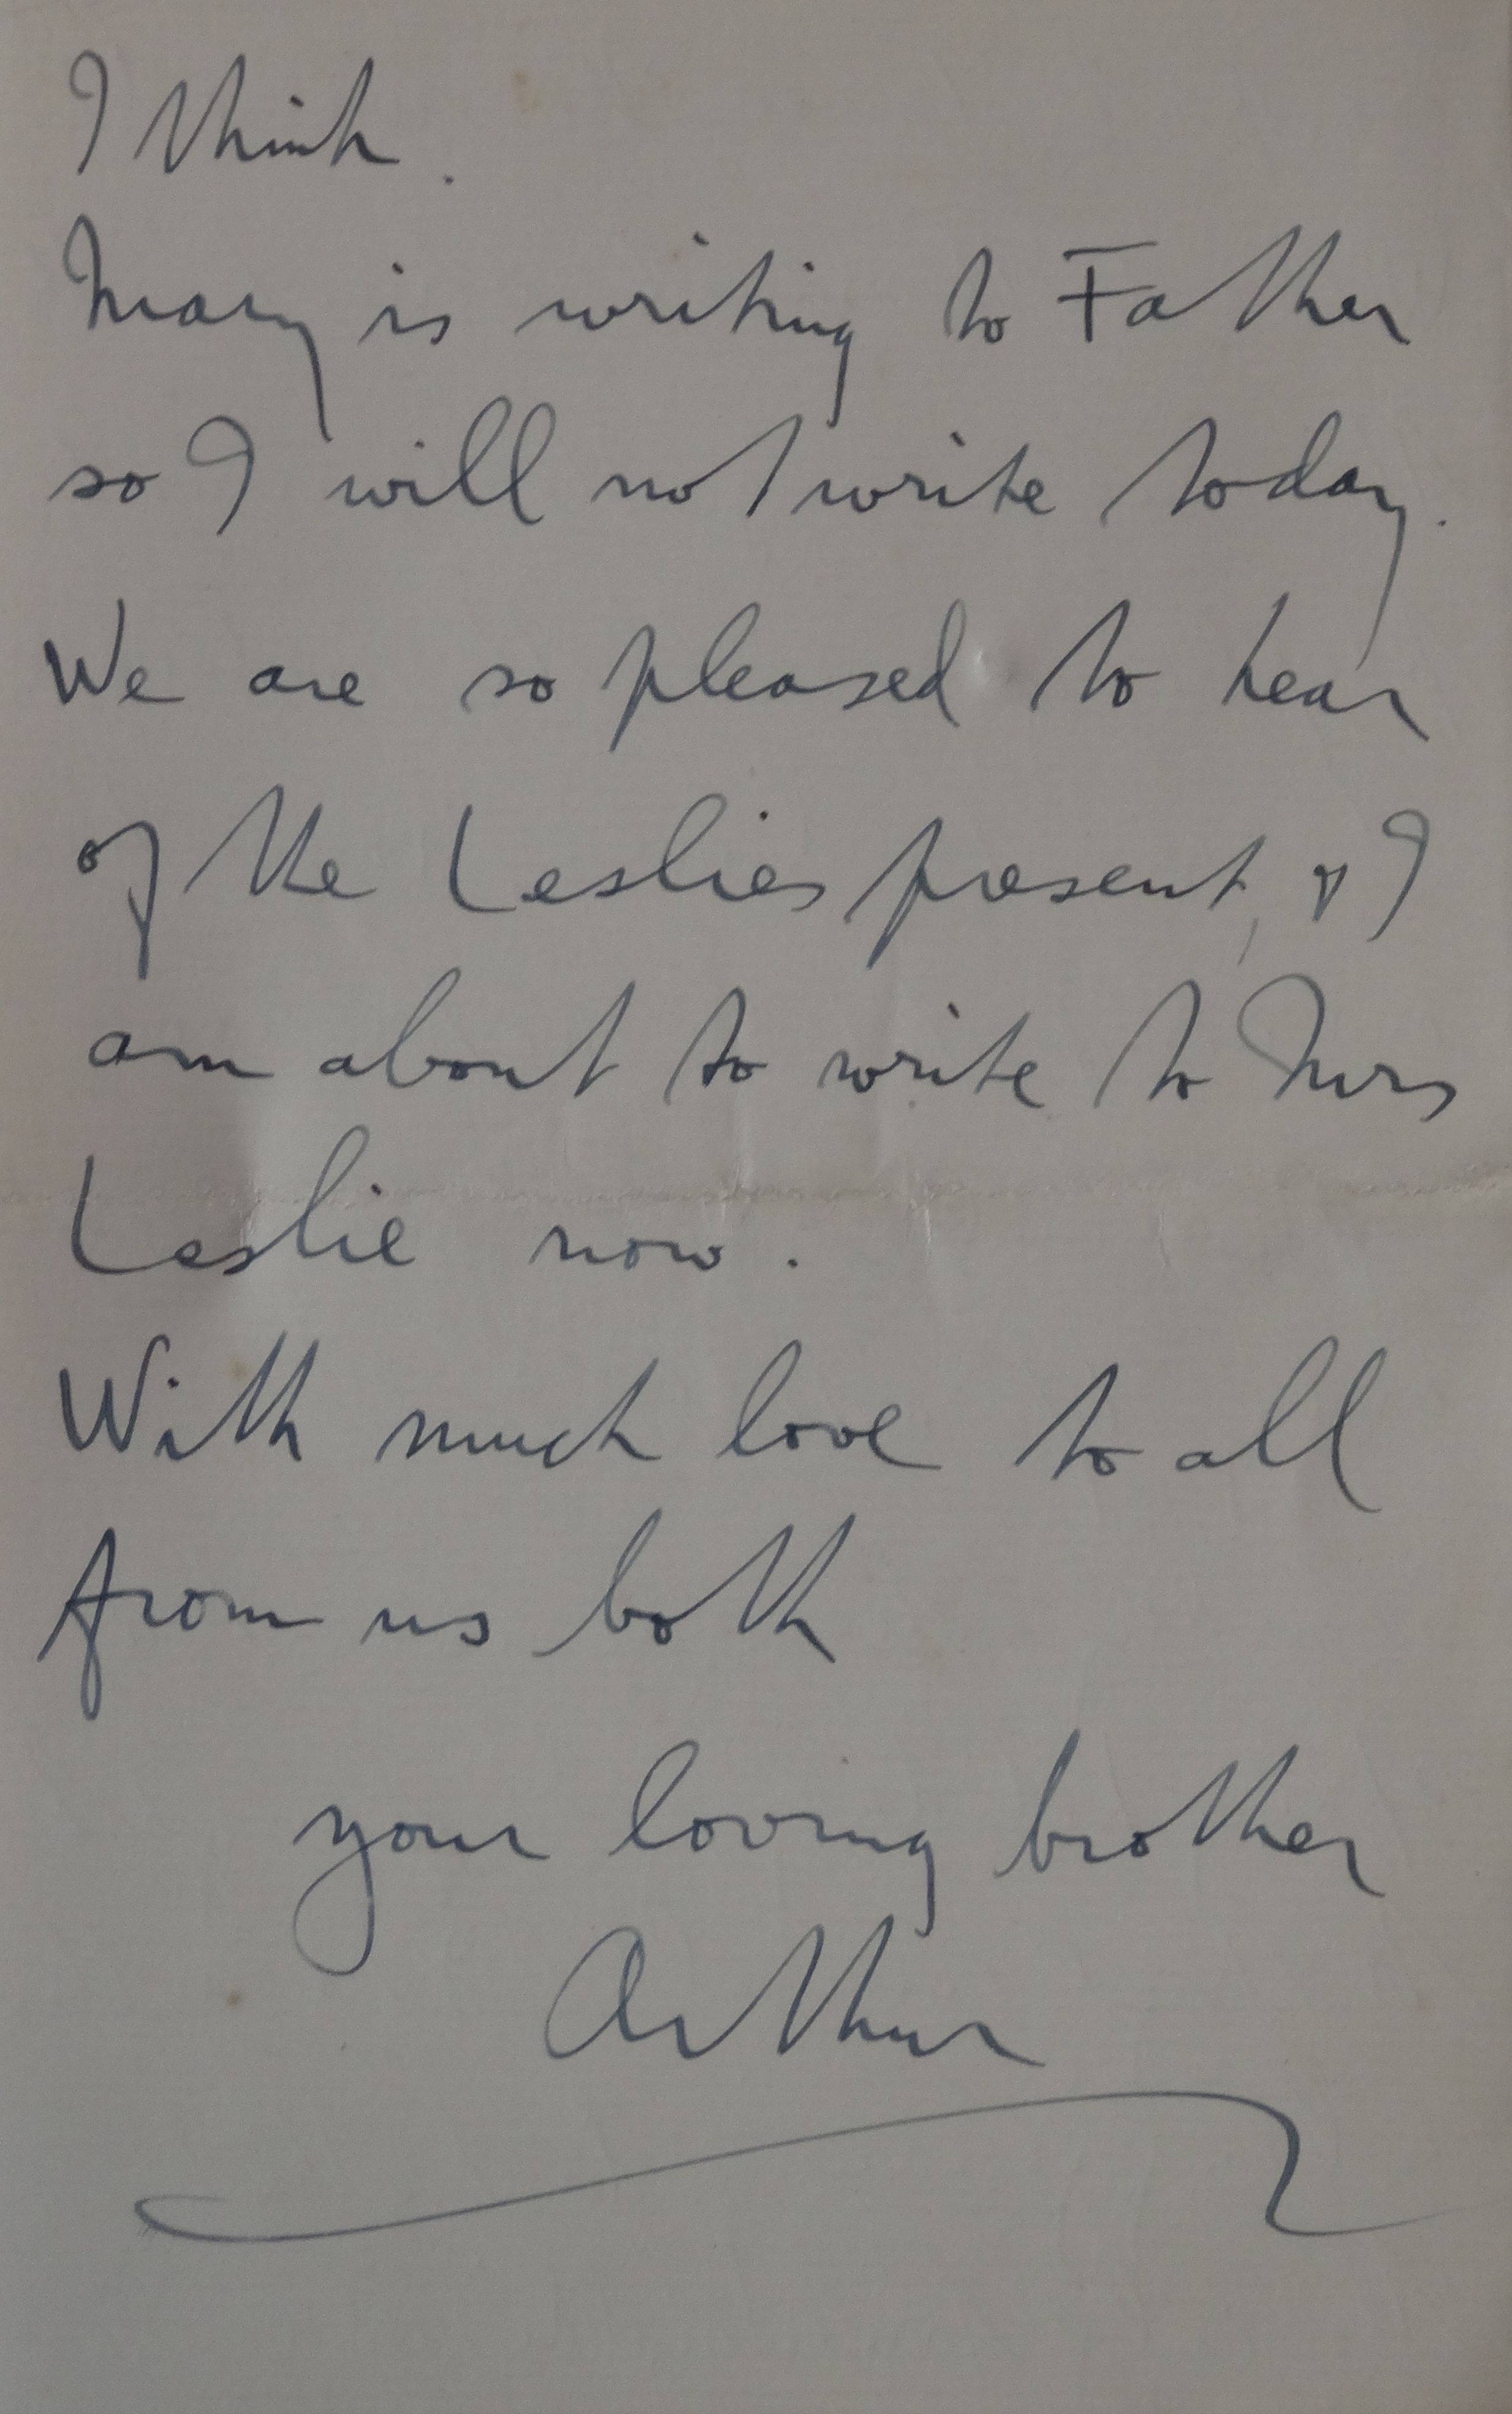 I think.
Mary is writing to Father
so I will not write today.
We are so pleased to hear
of the Leslies present, & I
am about to write to Mrs
Leslie now.
With much love to all
from us both
your loving brother
Arthur